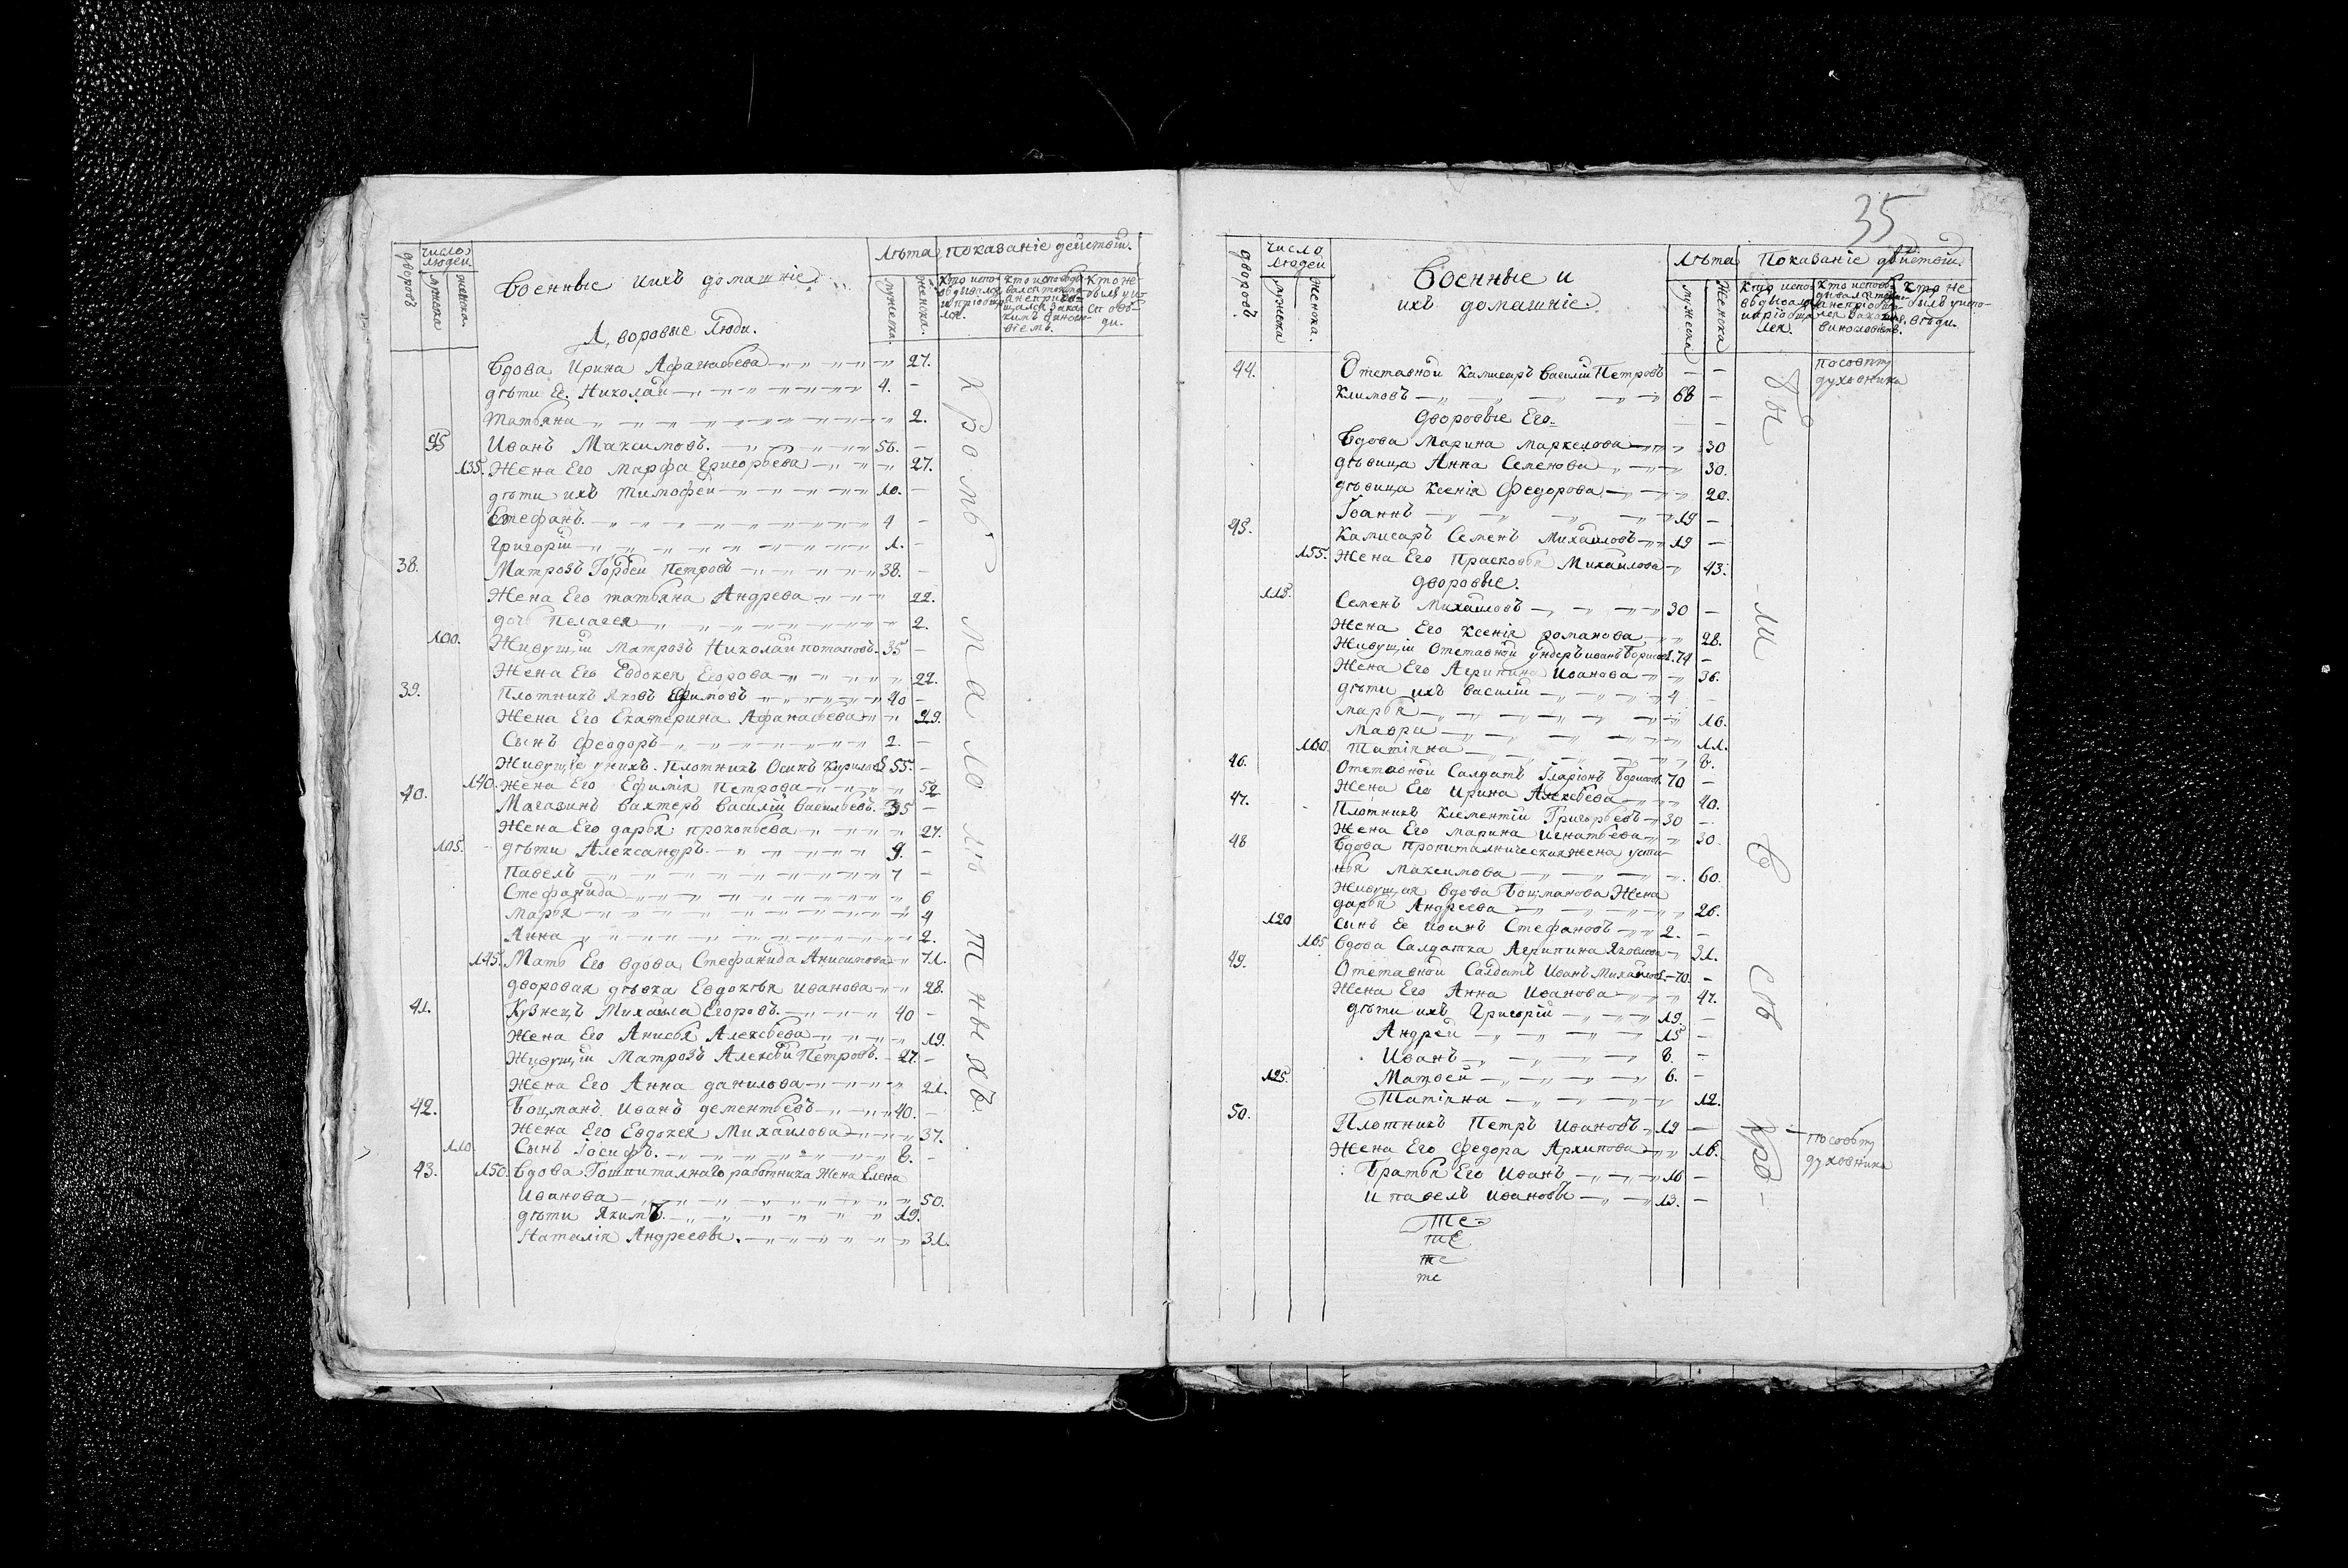 дворовъ
число людей
мужеска
женска
Военные и ихъ домашніе.
Лѣта
мужеска
женска
показаніе дейстъви.
кто испо-
кто исповѣды-
кто не
Дворовые Люди.
Вдова Ирина Афанасьева 27.
дѣти Ее. Николай 4. –
Татьяна 2.
95 Иванъ Максимовъ. 56. –
135. Жена Его Марфа Григорьева 27.
дѣти ихъ Тимофей 10. –
Стефанъ. 4 –
Григорій 1. –
38. Матрозъ Гордей Петровъ 38. –
Жена Его татьяна Андрева 22.
дочь Пелагея 2.
100. Живущій Матрозъ Николай потаповъ. 35 –
Жена Его Евдокея Егорова 22.
39. Плотникъ Яковъ Ефимовъ 40 –
Жена Его Екатерина Афанасьева 29.
Сынъ феодоръ 2. –
Живущіе у нихъ. Плотникъ Осипъ Кириловъ 55. –
140. Жена Его Ефимія Петрова 52
40. Магазинъ вахтеръ Василій Васильевъ. 35 –
Жена Его дарья прокопьева 27.
105. дѣти Александръ. 9. –
Павелъ 7 –
Стефанида 6
Марья 4
Анна 2.
145. Мать Его вдова Стефанида Анисимова 71.
дворовая дѣвка Евдокѣя Иванова 28.
41. Кузнецъ Михаила Егоровъ. 40 –
Жена Его Анисья Алексѣева 19.
Живущій Матрозъ Алексѣй Петровъ. 27. –
Жена Его Анна данилова 21.
42. Боцманъ Иванъ дементьевъ 40. –
Жена Его Евдокея Михайлова 37.
110. Сынъ Іосифъ. 8. –
43. 150. Вдова Гошпиталнаго работника Жена Елена
Иванова 50.
дѣти Якимъ. 19.
Наталія Андреевы. 31.
кромѣ малолѣтныхъ.
35
дворовъ
число людей
мужеска
женска
Военные и
ихъ домашніе.
Лѣта
мужеска
женска
Показаніе дѣйстви.
кто не
44. Отставной Камисаръ Василій Петровъ – –
Климовъ 68 –
дворовые Его.
Вдова Марина Маркелова 30
дѣвица Анна Семенова 30.
дѣвица Ксенія Федорова 20.
Іоаннъ 19 –
45. Камисаръ Семенъ Михайловъ 19 –
155. Жена Его Прасковья Михайлова 43.
дворовые.
115. Семенъ Михайловъ 30 –
Жена Его Ксенія романова 28.
Живущій Отставной ундеръ иванъ Борисовъ. 74 –
Жена Его Агрипина Иванова 36.
дѣти ихъ василій 4 –
марья 16.
Мавра 11.
160. Татіяна 8.
46. Отставной Салдатъ Іларіонъ Борисовъ 70 –
Жена Его Ирина Алексѣева 40.
47. Плотникъ Клементій Григорьевъ 30 –
Жена Его марина игнатьева 30.
48 Вдова прописталническая жена усти-
нья Максимова 60.
Живущая вдова Боцманова Жена
дарья Андреева 26.
120 Сынъ Ее Иванъ Стефановъ 2. –
165 Вдова Салдатка Агрипина Яковлева 31.
49. Отставной Салдатъ Иванъ Михайловъ 70. –
Жена Его Анна Иванова 47.
дѣти ихъ Григорій 19. –
Андрей 15 –
Иванъ 8. –
125. Матвей 6. –
Татіяна 12.
50. Плотникъ Петръ Ивановъ 19 –
Жена Его Федора Архипова 18.
Братья Его Иванъ 16 –
и павелъ Ивановы 13. –
Те-
те
те
те
бы-ли всѣ кро-
посовѣту
духовника
посовѣту
духовника